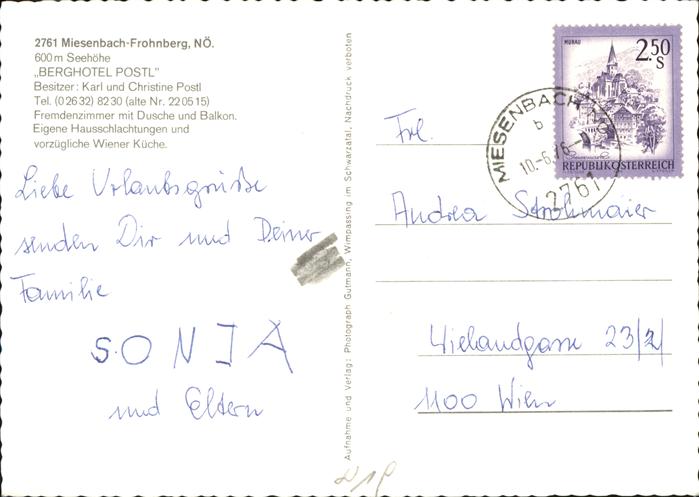 2761 Miesenbach-Frohnberg, NÖ.
600 m Seehöhe
„BERGHOTEL POSTL"
Besitzer: Karl und Christine Postl
Tel. (0 26 32) 82 30 (alte Nr. 22 05 15)
Fremdenzimmer mit Dusche und Balkon.
Eigene Hausschlachtungen und
vorzügliche Wiener Küche.
Liebe Urlaubsgrüße
senden Dir und Deiner
Familie
SONJA
und Eltern
Aufnahme und Verlag: Photograph Gutmann, Wimpassing im Schwarzatal. Nachdruck verboten
MURAU
2.50
S
REPUBLIK ÖSTERREICH
MIESENBACH
b
10.-6.76-
2761
Frl.
Andrea Strohmaier
Wielandgasse 23/2/
1100 Wien